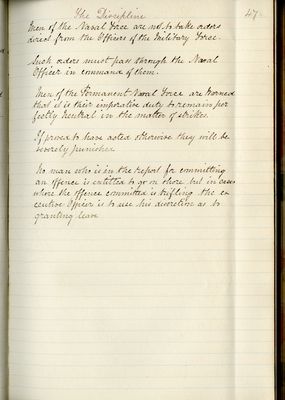 The Discipline
47
Men of the Naval Force are not to take orders
direct from the Officers of the Military Force.
Such orders must pass through the Naval
Officer in command of them.
Men of the Permanent Naval Force are warned
that it is their imperative duty to remain per
fectly neutral in the matter of strikes.
If proved to have acted otherwise they will be
severely punished
No man who is in the report for committing
an offence is entitled to go on shore, but in cases
where the offence committed is trifling the ex
ecutive Officer is to use his discretion as to
granting leave